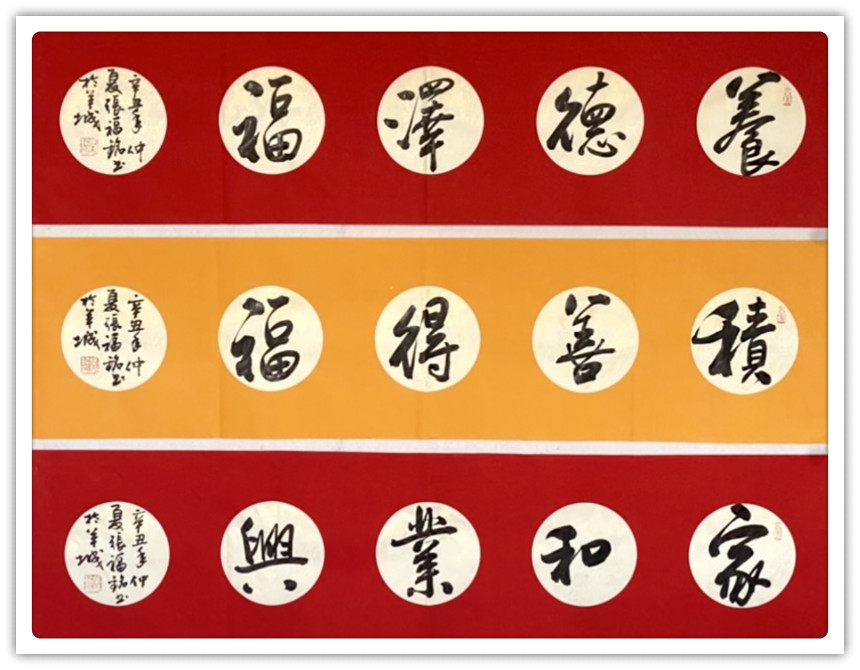 養德澤福
辛丑年仲
夏張福銘书
於羊城
積善得福
辛丑年仲
夏張福銘书
於羊城
家和業興
辛丑年仲
夏張福銘书
於羊城